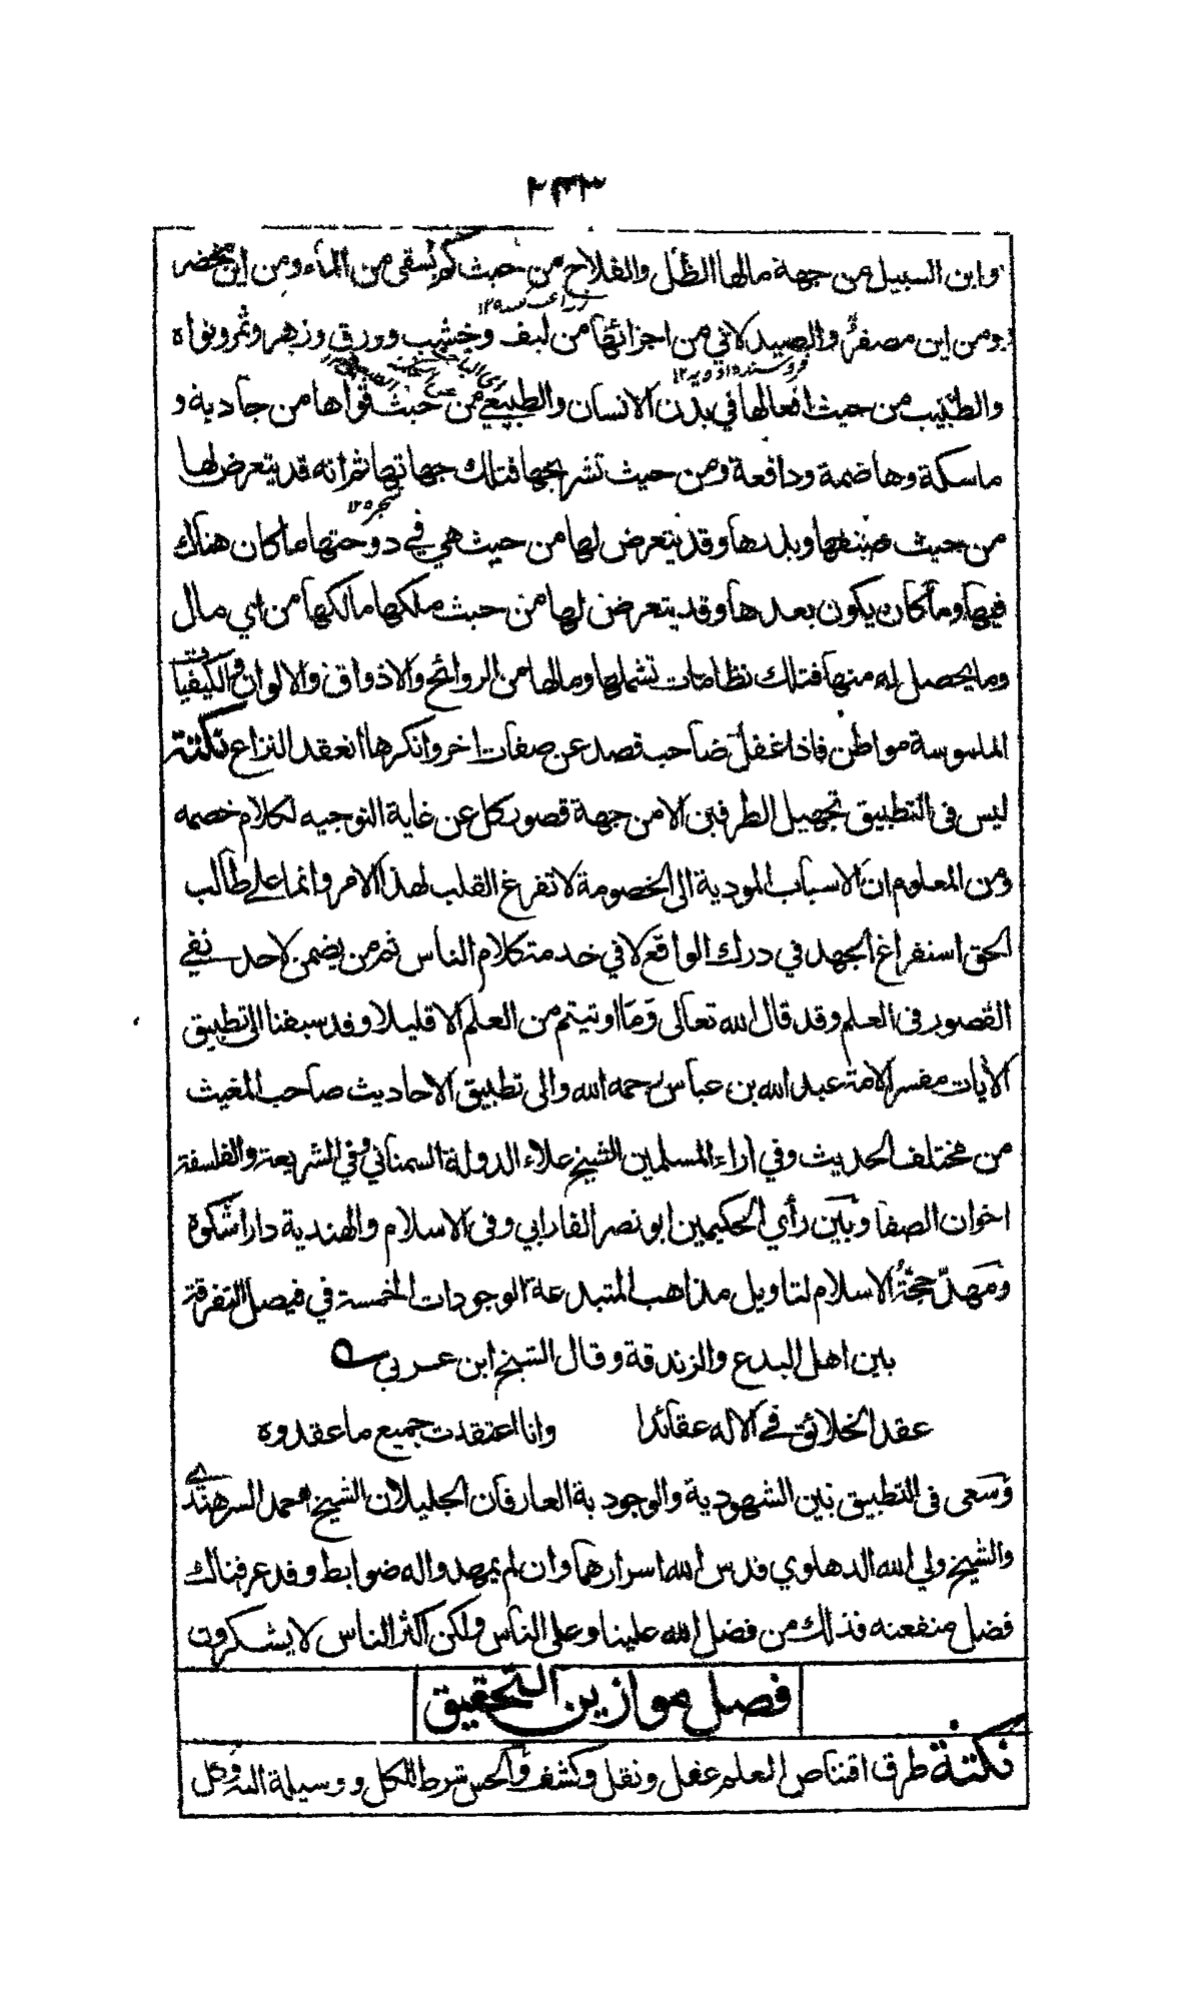 ٢٣٣
وابن السبيل من جهة مالها الظل والفلاح من حيث كم يسقى من الماء ومن اين يخضر
ومن اين مصفر والصيدلاني من اجزائها من ليف وخشب وورق وزهر وثمر ونواه
والطبيب من حيث افعالها في بدن الانسان والطبيعي من حيث قواها من جاذبة و
ماسكة وهاضمة ودافعة ومن حيث تشريحها فتلك جهاتها ثم انه قد يتعرض لها
من حيث صنفها وبلدها وقد يتعرض لها من حيث هي في دوحتها ما كان هناك
فيها وما كان يكون بعدها وقد يتعرض لها من حيث ملكها مالكها من اي مال
وما يحصل له منها فتلك نظامات تشملها ومالها من الروائح والاذواق والالوان والكيفيات
الملموسة مواطن فاذا غفل صاحب قصد عن صفات اخر وانكرها انعقد النزاع نكتة
ليس في التطبيق تجهيل الطرفين الا من جهة قصور كل عن غاية التوجيه لكلام خصمه
ومن المعلوم ان الاسباب المودية الى الخصومة لا تفرغ القلب لهذا الامر وانما على طالب
الحق استفراغ الجهد في درك الواقع لا في خدمة كلام الناس ثم من يضمن لاحد نفي
القصور في العلم وقد قال الله تعالى وما اوتيتم من العلم الا قليلا وقد سبقنا الى تطبيق
الآيات مفسر الامة عبد الله بن عباس رحمه الله والى تطبيق الاحاديث صاحب المغيث
من مختلف الحديث وفي اراء المسلمين الشيخ علاء الدولة السمناني وفي الشريعة والفلسفة
اخوان الصفا وبين رأي الحكيمين ابو نصر الفارابي وفي الاسلام والهندية داراشكوة
ومهد حجة الاسلام لتاويل مذاهب المتبدعة الوجودات الخمسة في فيصل التفرقة
بين اهل البدع والزندقة وقال الشيخ ابن عربي
عقد الخلائق في الاله عقائدا وانا اعتقدت جميع ما عقدوه
وسعى في التطبيق بين الشهودية والوجودية العارفان الجليلان الشيخ احمد السرهندي
والشيخ ولي الله الدهلوي قدس الله اسرارهما وان لم يمهدوا له ضوابط وقد عرفناك
فضل منفعته فذلك من فضل الله علينا وعلى الناس ولكن اكثر الناس لا يشكرون
فصل موازين التحقيق
نكتة طرق اقتناص العلم عقل ونقل وكشف والحس شرط للكل ووسيلة اليه وكل